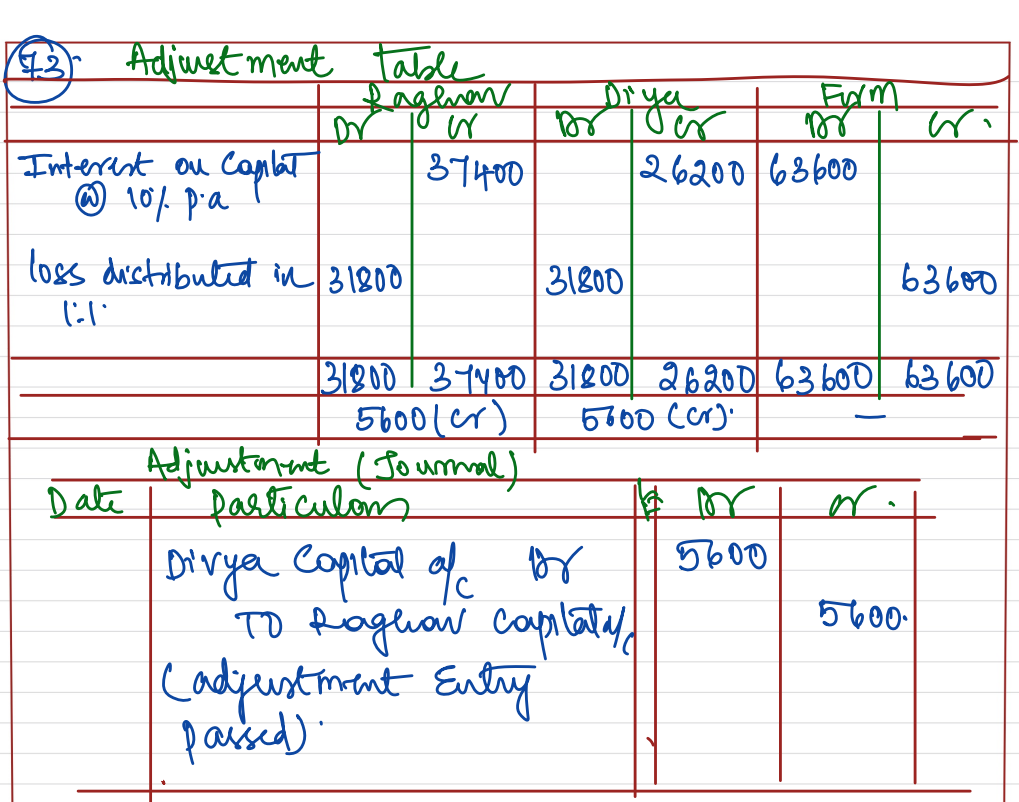 73. Adjustment Table
Raghav Divya Firm
Dr Cr Dr Cr Dr Cr.
Interest on Capital 37400 26200 63600
@ 10% p.a
loss distributed in 31800 31800 63600
1:1.
31800 37400 31800 26200 63600 63600
5600 (Cr) 5600 (Cr). —
Adjustment (Journal)
Date Particulars LF Dr Cr.
Divya Capital a/c Dr 5600
To Raghav Capital a/c 5600.
(adjustment Entry
passed).